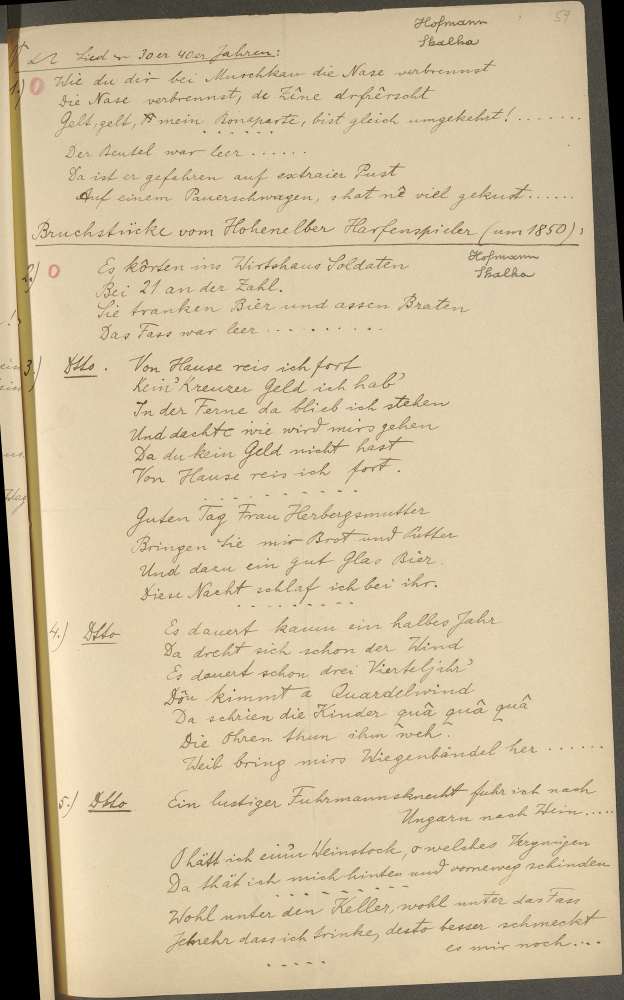 59
Hofmann
Skalka
Lied in 30er 40er Jahren:
1.) O Wie du dir bei Muschkau die Nase verbrennst
Die Nase verbrennst, de Zêne
Gelt, gelt, mein Bonaparte, bist gleich umgekehrt! .......
......
Der Beutel war leer ......
Da ist er gefahren auf extraier Pust
Auf einem Pauerschwagen, s hat nê viel gekust ......
Bruchstücke vom Hohenelber Harfenspieler (um 1850):
Hofmann
Skalka
2.) O Es kôrten ins Wirtshaus Soldaten
Bei 21 an der Zahl.
Sie tranken Bier und assen Braten
Das Fass war leer .........
3.) Dtto. Von Hause reis ich fort
Kein' Kreuzer Geld ich hab'
In der Ferne da blieb ich stehen
Und dachte wie wird mirs gehen
Da du kein Geld nicht hast
Von Hause reis ich fort.
.........
Guten Tag Frau Herbergsmutter
Bringen Sie mir Brot und Putter
Und dazu ein gut Glas Bier.
Diese Nacht schlaf ich bei ihr.
.........
4.) Dtto Es dauert kaum ein halbes Jahr
Da dreht sich schon der Wind
Es dauert schon drei Vierteljahr'
Dôu kimmt a Quardelwind
Da schrien die Kinder quâ quâ quâ
Die Ohren thun ihm weh.
Weib bring mirs Wiegenbändel her ......
5.) Dtto Ein lustiger Fuhrmannsknecht fuhr ich nach
Ungarn nach Wein .....
O hätt ich einen Weinstock, o welches Vergnügen
Da thät ich mich hinten und vorneweg schinden
.........
Wohl unter den Keller, wohl unter das Fass
Jemehr dass ich trinke, desto besser schmeckt
es mir noch ....
.....